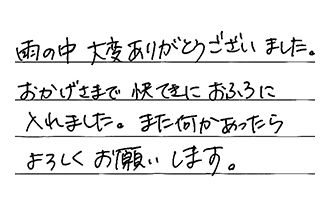 雨の中 大変ありがとうございました。
おかげさまで 快てきに おふろに
入れました。また何かあったら
よろしく お願い します。